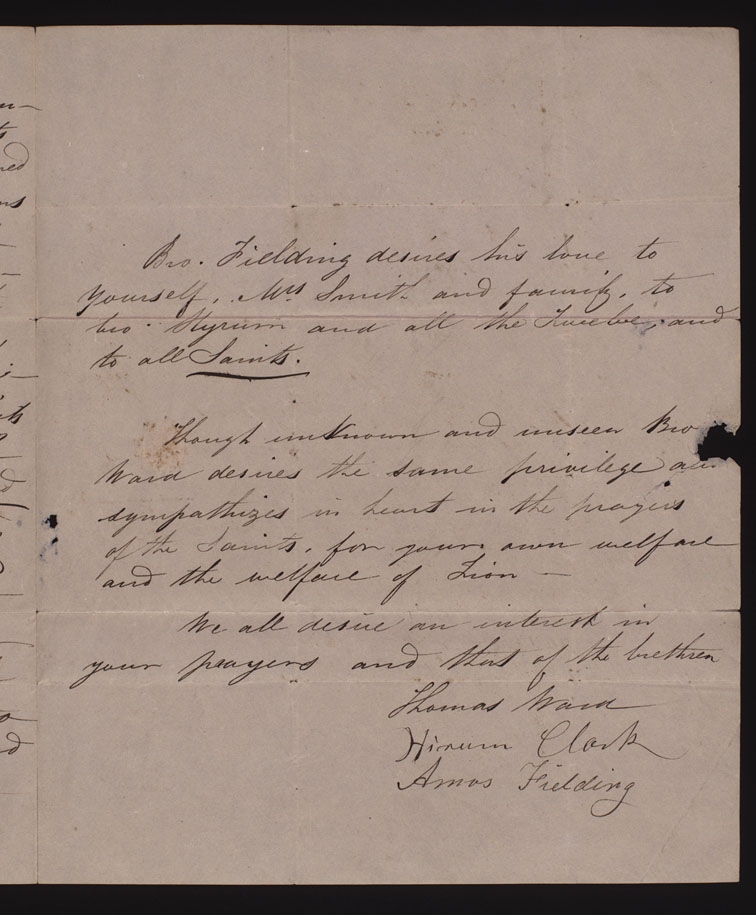 Bro. Fielding desires his love to
yourself, Mrs Smith and family, to
bro. Hyrum and all the Twelve, and
to all Saints.
Though unknown and unseen Bro
Ward desires the same privilege and
sympathizes in heart in the prayers
of the Saints, for your own welfare
and the welfare of Zion —
We all desire an interest in
your prayers and that of the brethren
Thomas Ward
Hirum Clark
Amos Fielding